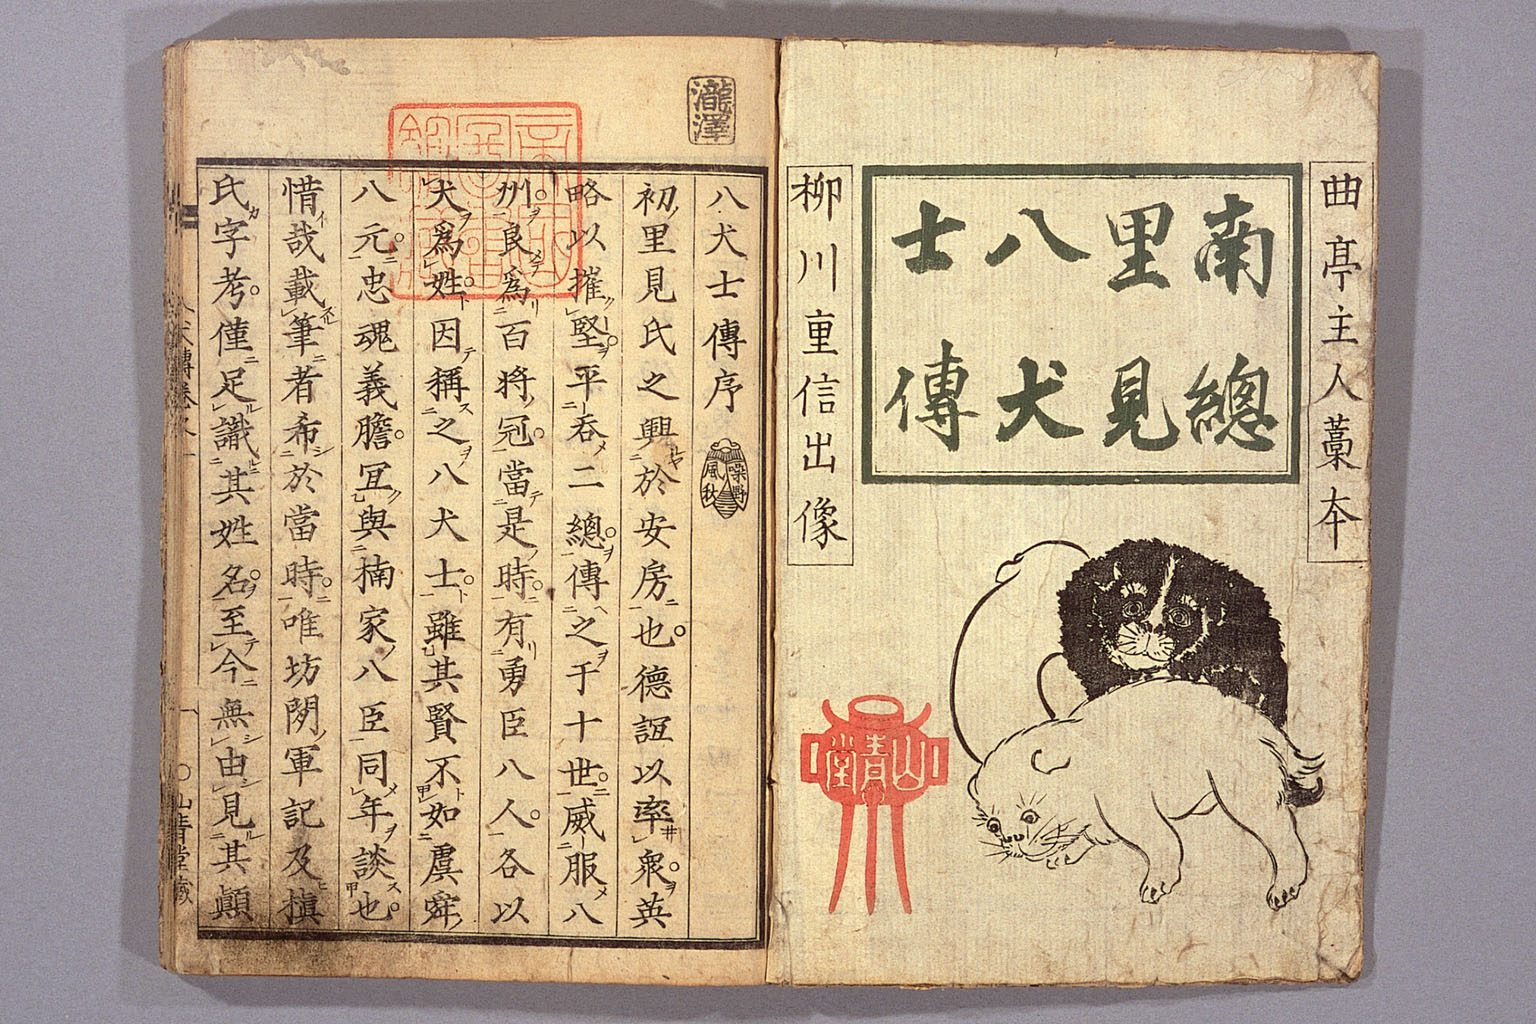 曲亭主人藁本
南總
里見
八犬
士傳
柳川重信出像
山青堂
瀧澤
八犬士傳序
初里見氏之興於安房也德誼以率衆英
略以摧堅平呑二總傳之于十世威服八
州良爲百将冠當是時有勇臣八人各以
犬爲姓因稱之八犬士雖其賢不如虞舜
八元忠魂義膽冝與楠家八臣同年談也
惜哉載筆者希於當時唯坊間軍記及槙
氏字考僅足識其姓名至今無由見其顛